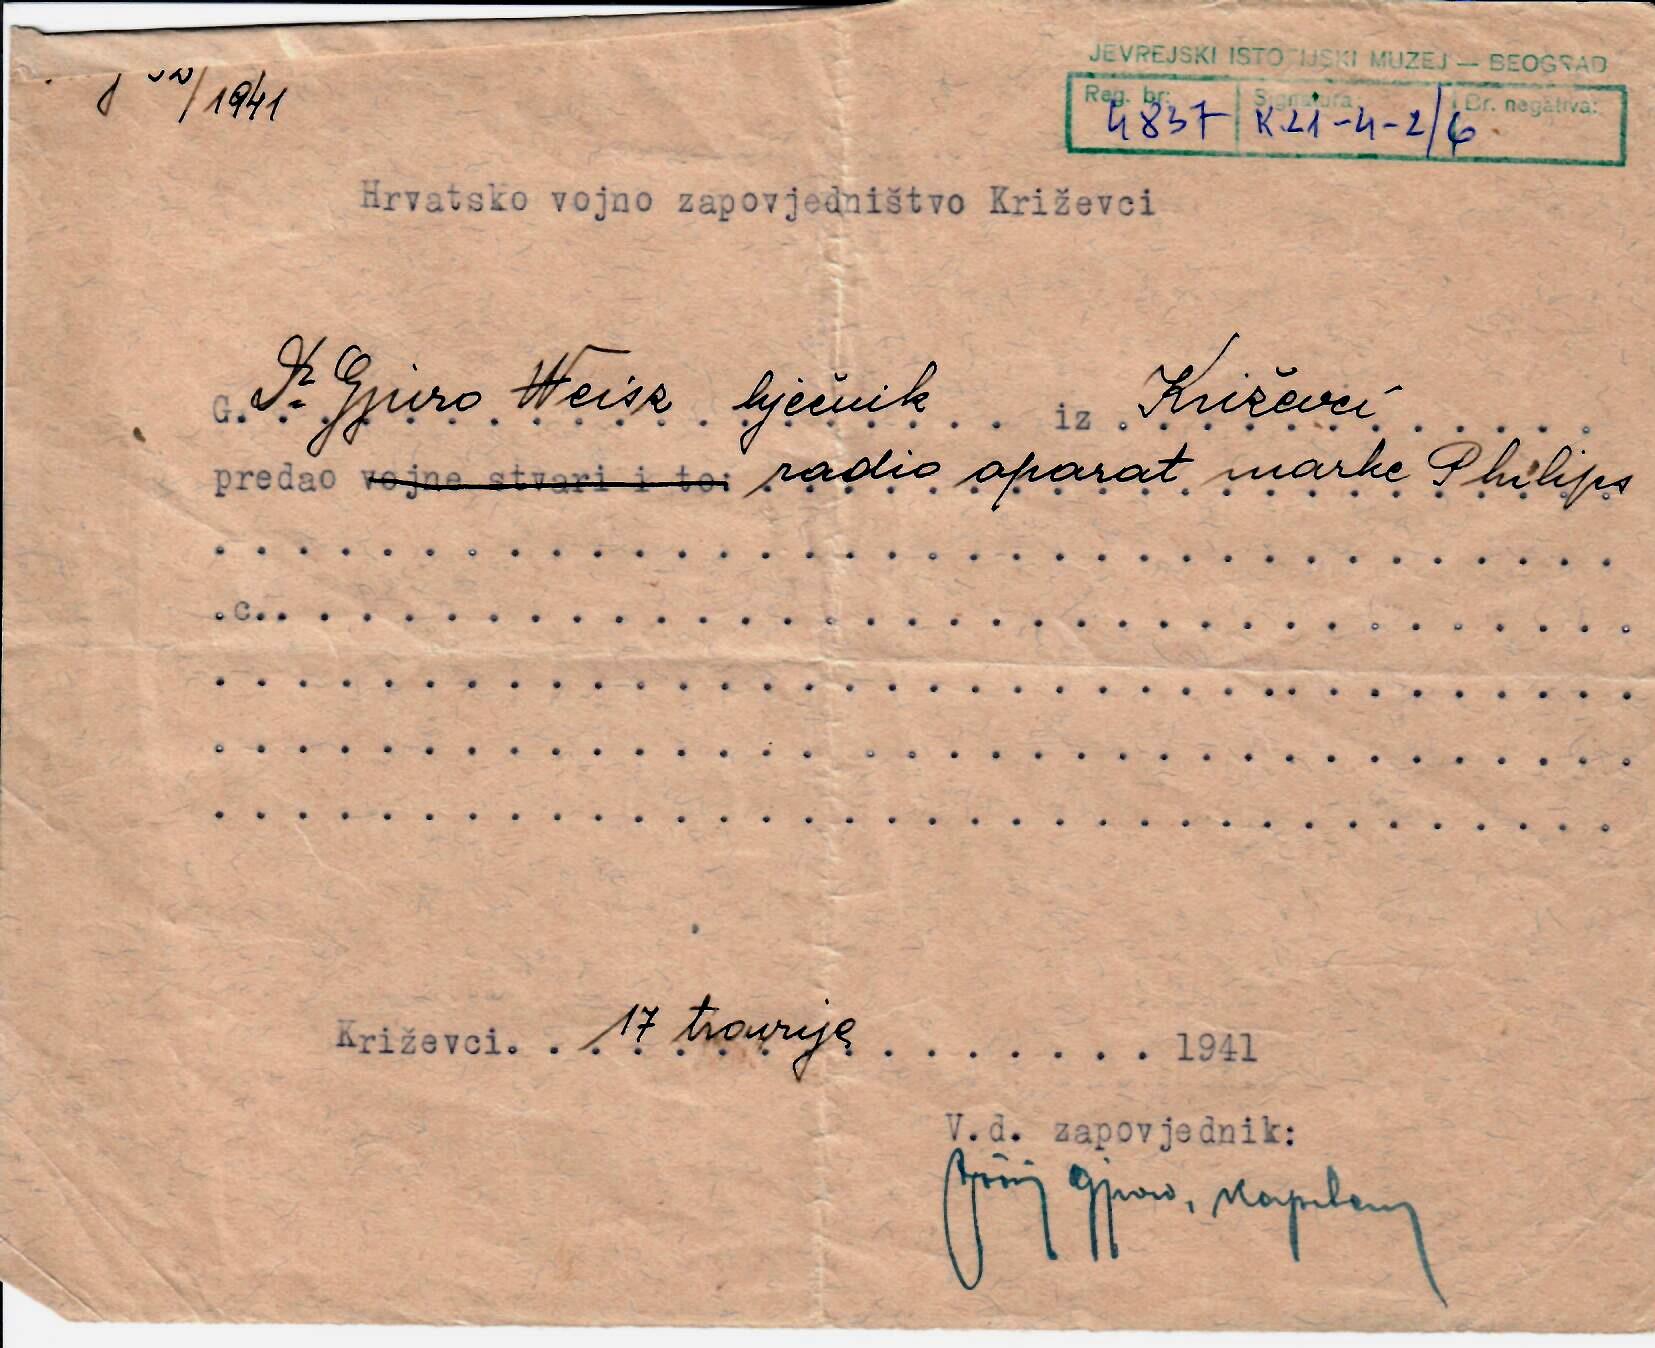 JEVREJSKI ISTORIJSKI MUZEJ — BEOGRAD
Reg. br: Signatura Br. negativa:
4837 K.21-4-2/6
/1941
Hrvatsko vojno zapovjedništvo Križevci
G. Dr Gjuro Weisz liječnik iz Križevci
predao vojne stvari i to: radio aparat marke Philips
.c.
Križevci. 17 travnja 1941
V.d. zapovjednik:
Gjuro,